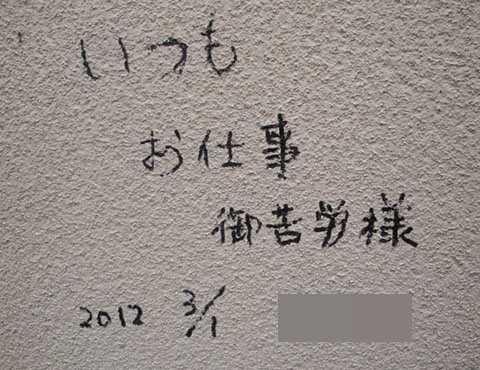 いつも
お仕事
御苦労様
2012 3/1